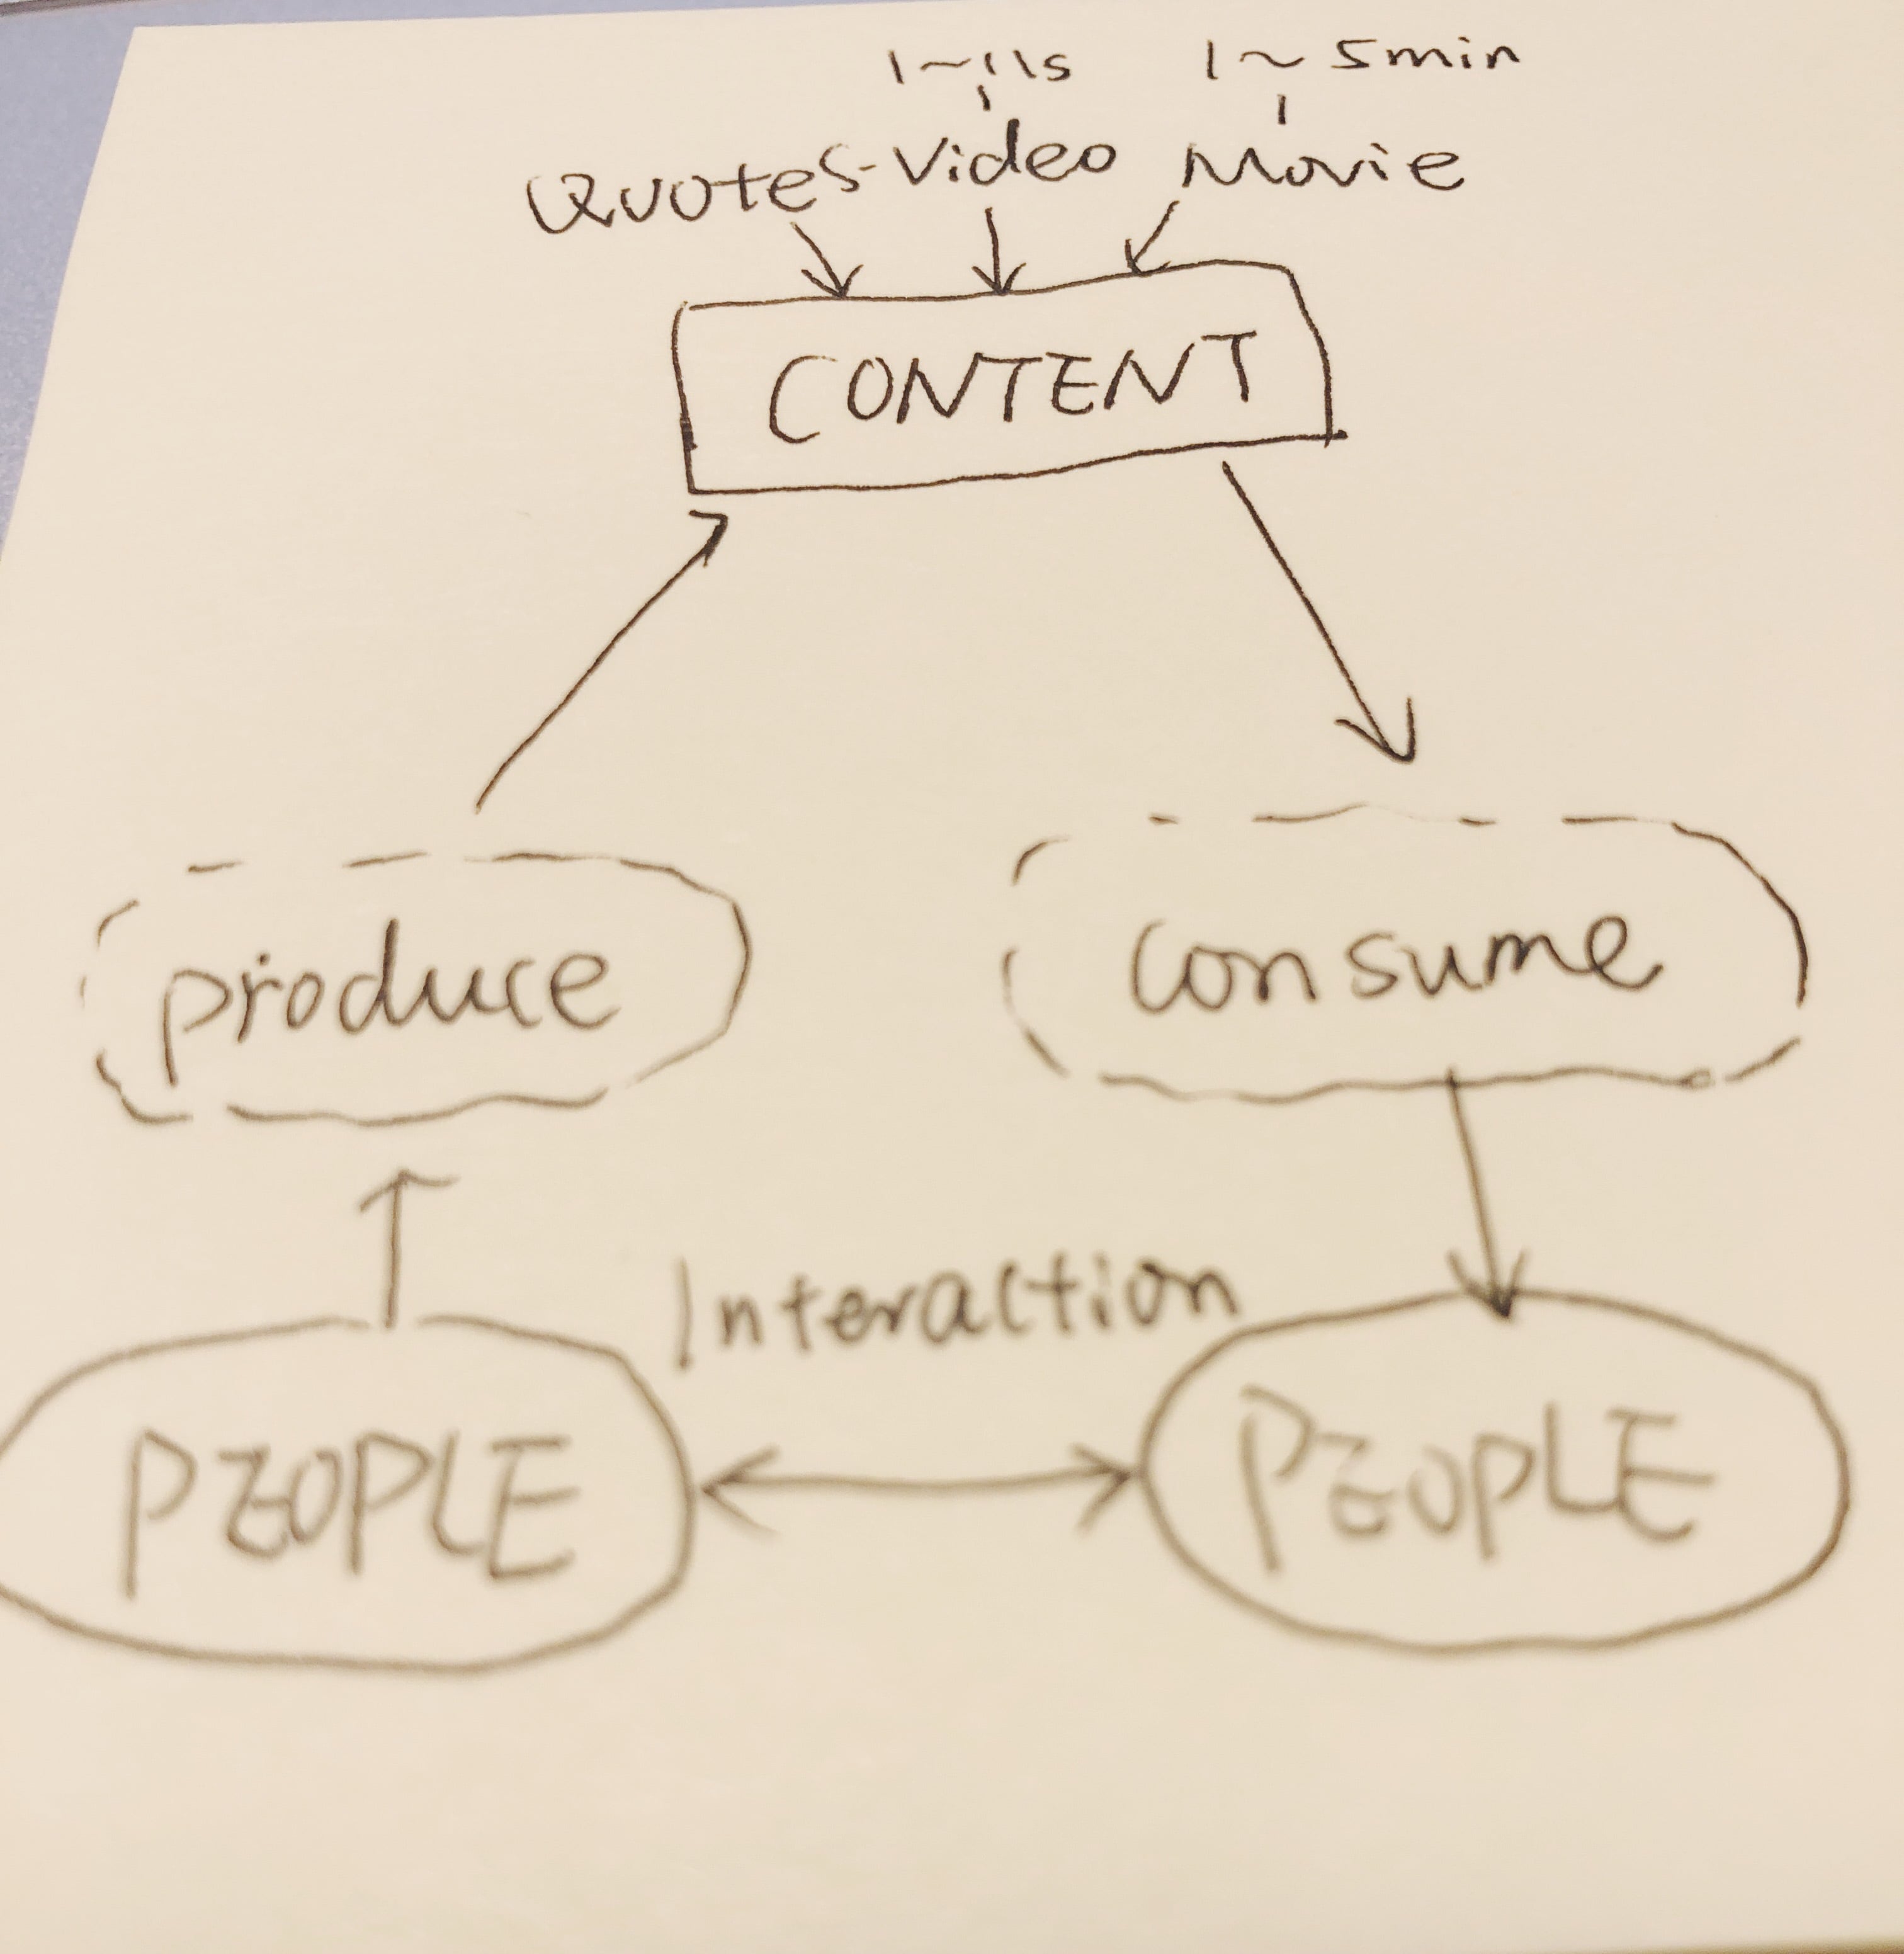 1~11s 1~5min
Quotes-Video Movie
CONTENT
produce consume
Interaction
PEOPLE PEOPLE